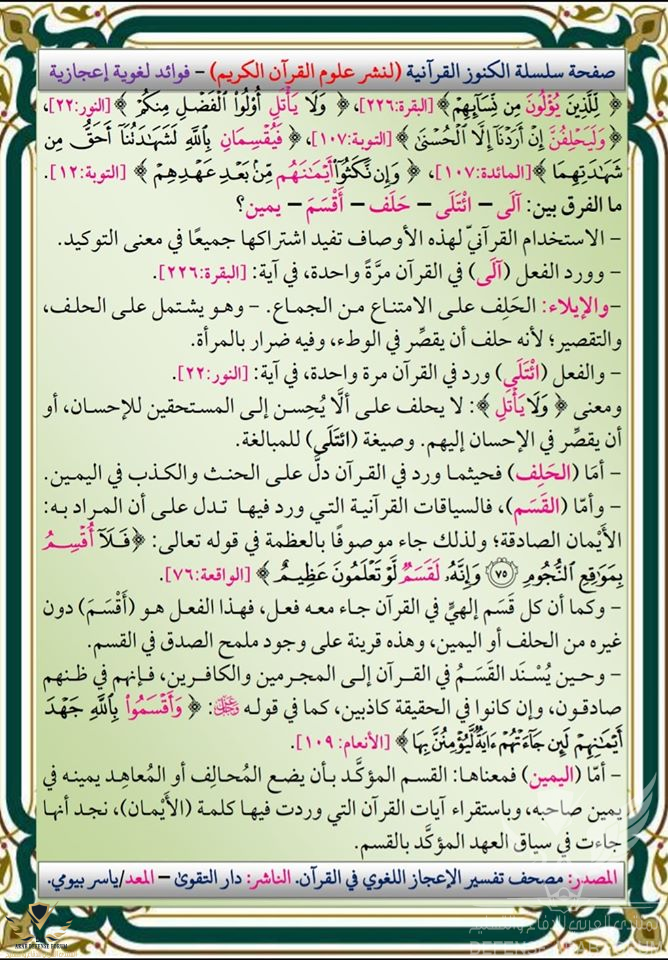 صفحة سلسلة الكنوز القرآنية (لنشر علوم القرآن الكريم) – فوائد لغوية إعجازية
﴿ لِّلَّذِينَ يُؤْلُونَ مِن نِّسَآئِهِمْ ﴾ [البقرة:٢٢٦]، ﴿ وَلَا يَأْتَلِ أُوْلُواْ الْفَضْلِ مِنكُمْ ﴾ [النور:٢٢]،
﴿ وَلَيَحْلِفُنَّ إِنْ أَرَدْنَا إِلَّا الْحُسْنَىٰ ﴾ [التوبة:١٠٧]، ﴿ فَيُقْسِمَانِ بِاللَّهِ لَشَهَادَتُنَا أَحَقُّ مِن
شَهَادَتِهِمَا ﴾ [المائدة:١٠٧]، ﴿ وَإِن نَّكَثُواْ أَيْمَانَهُم مِّنْ بَعْدِ عَهْدِهِمْ ﴾ [التوبة:١٢].
ما الفرق بين: آلَى – ائْتَلَى – حَلَف – أَقْسَمَ – يمين؟
– الاستخدام القرآنيّ لهذه الأوصاف تفيد اشتراكها جميعًا في معنى التوكيد.
– وورد الفعل (آلَى) في القرآن مرَّةً واحدة، في آية: [البقرة:٢٢٦].
–والإيلاء: الحَلِف على الامتناع من الجماع. – وهو يشتمل على الحلف،
والتقصير؛ لأنه حلف أن يقصِّر في الوطء، وفيه ضرار بالمرأة.
– والفعل (ائْتَلَى) ورد في القرآن مرة واحدة، في آية: [النور:٢٢].
ومعنى ﴿ وَلَا يَأْتَلِ ﴾: لا يحلف على ألَّا يُحسِن إلى المستحقين للإحسان، أو
أن يقصِّر في الإحسان إليهم. وصيغة (ائتَلَى) للمبالغة.
– أمَا (الحَلِف) فحيثما ورد في القرآن دلَّ على الحنث والكذب في اليمين.
– وأمّا (القَسَم)، فالسياقات القرآنية التي ورد فيها تدل على أن المراد به:
الأَيْمان الصادقة؛ ولذلك جاء موصوفًا بالعظمة في قوله تعالى: ﴿ فَلَآ أُقْسِمُ
بِمَوَاقِعِ النُّجُومِ ٧٥ وَإِنَّهُ لَقَسَمٌ لَّوْ تَعْلَمُونَ عَظِيمٌ ﴾ [الواقعة:٧٦].
– وكما أن كل قَسَم إلهيٍّ في القرآن جاء معه فعل، فهذا الفعل هو (أَقْسَمَ) دون
غيره من الحلف أو اليمين، وهذه قرينة على وجود ملمح الصدق في القسم.
– وحين يُسْنَد القَسَمُ في القرآن إلى المجرمين والكافرين، فإنهم في ظنهم
صادقون، وإن كانوا في الحقيقة كاذبين، كما في قوله ﷻ: ﴿ وَأَقْسَمُواْ بِاللَّهِ جَهْدَ
أَيْمَانِهِمْ لَئِن جَآءَتْهُمْ ءَايَةٌ لَّيُؤْمِنُنَّ بِهَا ﴾ [الأنعام:١٠٩].
– أمّا (اليمين) فمعناها: القسم المؤكَّد بأن يضع المُحالِف أو المُعاهِد يمينه في
يمين صاحبه، وباستقراء آيات القرآن التي وردت فيها كلمة (الأَيْمان)، نجد أنها
جاءت في سياق العهد المؤكَّد بالقسم.
المصدر: مصحف تفسير الإعجاز اللغوي في القرآن. الناشر: دار التقوى – المعد/ياسر بيومي.
المنتدى العربي للدفاع والتسليح
DEFENSE ARAB FORUM
ARAB DEFENSE FORUM